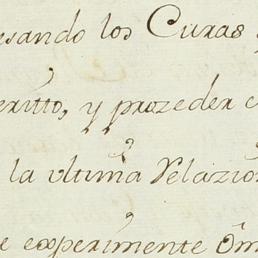 sando los Curas
eritto, y prozeder
la ultima Relazio
e experimente Om